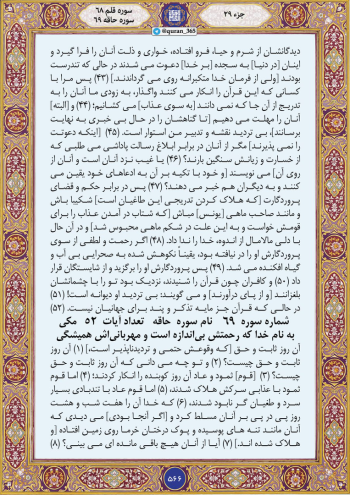 جزء ۲۹
سوره قلم ۶۸
سوره حاقه ۶۹
@quran_365
دیدگانشان از شرم و حیا، فرو افتاده، خواری و ذلت آنان را فرا گیرد و
اینان [در دنیا] به سجده [بر خدا] دعوت می شدند در حالی که تندرست
بودند [ولی از فرمان خدا متکبرانه روی می گرداندند.] (۴۳) پس مرا با
کسانی که این قرآن را انکار می کنند واگذار، به زودی ما آنان را به
تدریج از آن جا که نمی دانند [به سوی عذاب] می کشانیم؛ (۴۴) و [البته]
آنان را مهلت می دهیم [تا گناهشان را در حال بی خبری به نهایت
برسانند]، بی تردید نقشه و تدبیر من استوار است. (۴۵) [اینکه دعوتت
را نمی پذیرند] مگر از آنان در برابر ابلاغ رسالت پاداشی می طلبی که
از خسارت و زیانش سنگین بارند؟ (۴۶) یا غیب نزد آنان است و آنان از
روی آن] می نویسند [و خود با تکیه بر آن به ادعاهای خود یقین می
کنند و به دیگران هم خبر می دهند؟ (۴۷) پس در برابر حکم و قضای
پروردگارت [که هلاک کردن تدریجی این طاغیان است] شکیبا باش
و مانند صاحب ماهی [یونس] مباش [که شتاب در آمدن عذاب را برای
قومش خواست و به این علت در شکم ماهی محبوس شد] و در آن حال
با دلی مالامال از اندوه، خدا را ندا داد. (۴۸) اگر رحمت و لطفی از سوی
پروردگارش او را در نیافته بود، یقیناً نکوهش شده به صحرایی بی آب و
گیاه افکنده می شد. (۴۹) پس پروردگارش او را برگزید و از شایستگان قرار
داد (۵۰) و کافران چون قرآن را شنیدند، نزدیک بود تو را با چشمانشان
بلغزانند [و از پای درآورند] و می گویند: بی تردید او دیوانه است! (۵۱)
در حالی که قرآن جز مایه تذکر و پند برای جهانیان نیست. (۵۲)
شماره سوره ۶۹ نام سوره حاقه تعداد آیات ۵۲ مکی
به نام خدا که رحمتش بی‌اندازه است و مهربانی‌اش همیشگی
آن روز ثابت و حق [که وقوعش حتمی و تردیدناپذیر است،] (۱) آن روز
ثابت و حق چیست؟ (۲) و تو چه می دانی که آن روز ثابت و حق
چیست؟ (۳) [قوم] ثمود و عاد آن روز کوبنده را انکار کردند؛ (۴) اما قوم
ثمود با عذابی سرکش هلاک شدند، (۵) اما قوم عاد با تندبادی بسیار
سرد و طغیان گر نابود شدند، (۶) که خدا آن را هفت شب و هشت
روز پی در پی بر آنان مسلط کرد و [اگر آنجا بودی] می دیدی که
آنان مانند تنه های پوسیده و پوک درختان خرما روی زمین افتاده [و
هلاک شده اند.] (۷) آیا از آنان هیچ باقی مانده ای می بینی؟ (۸)
۵۶۶